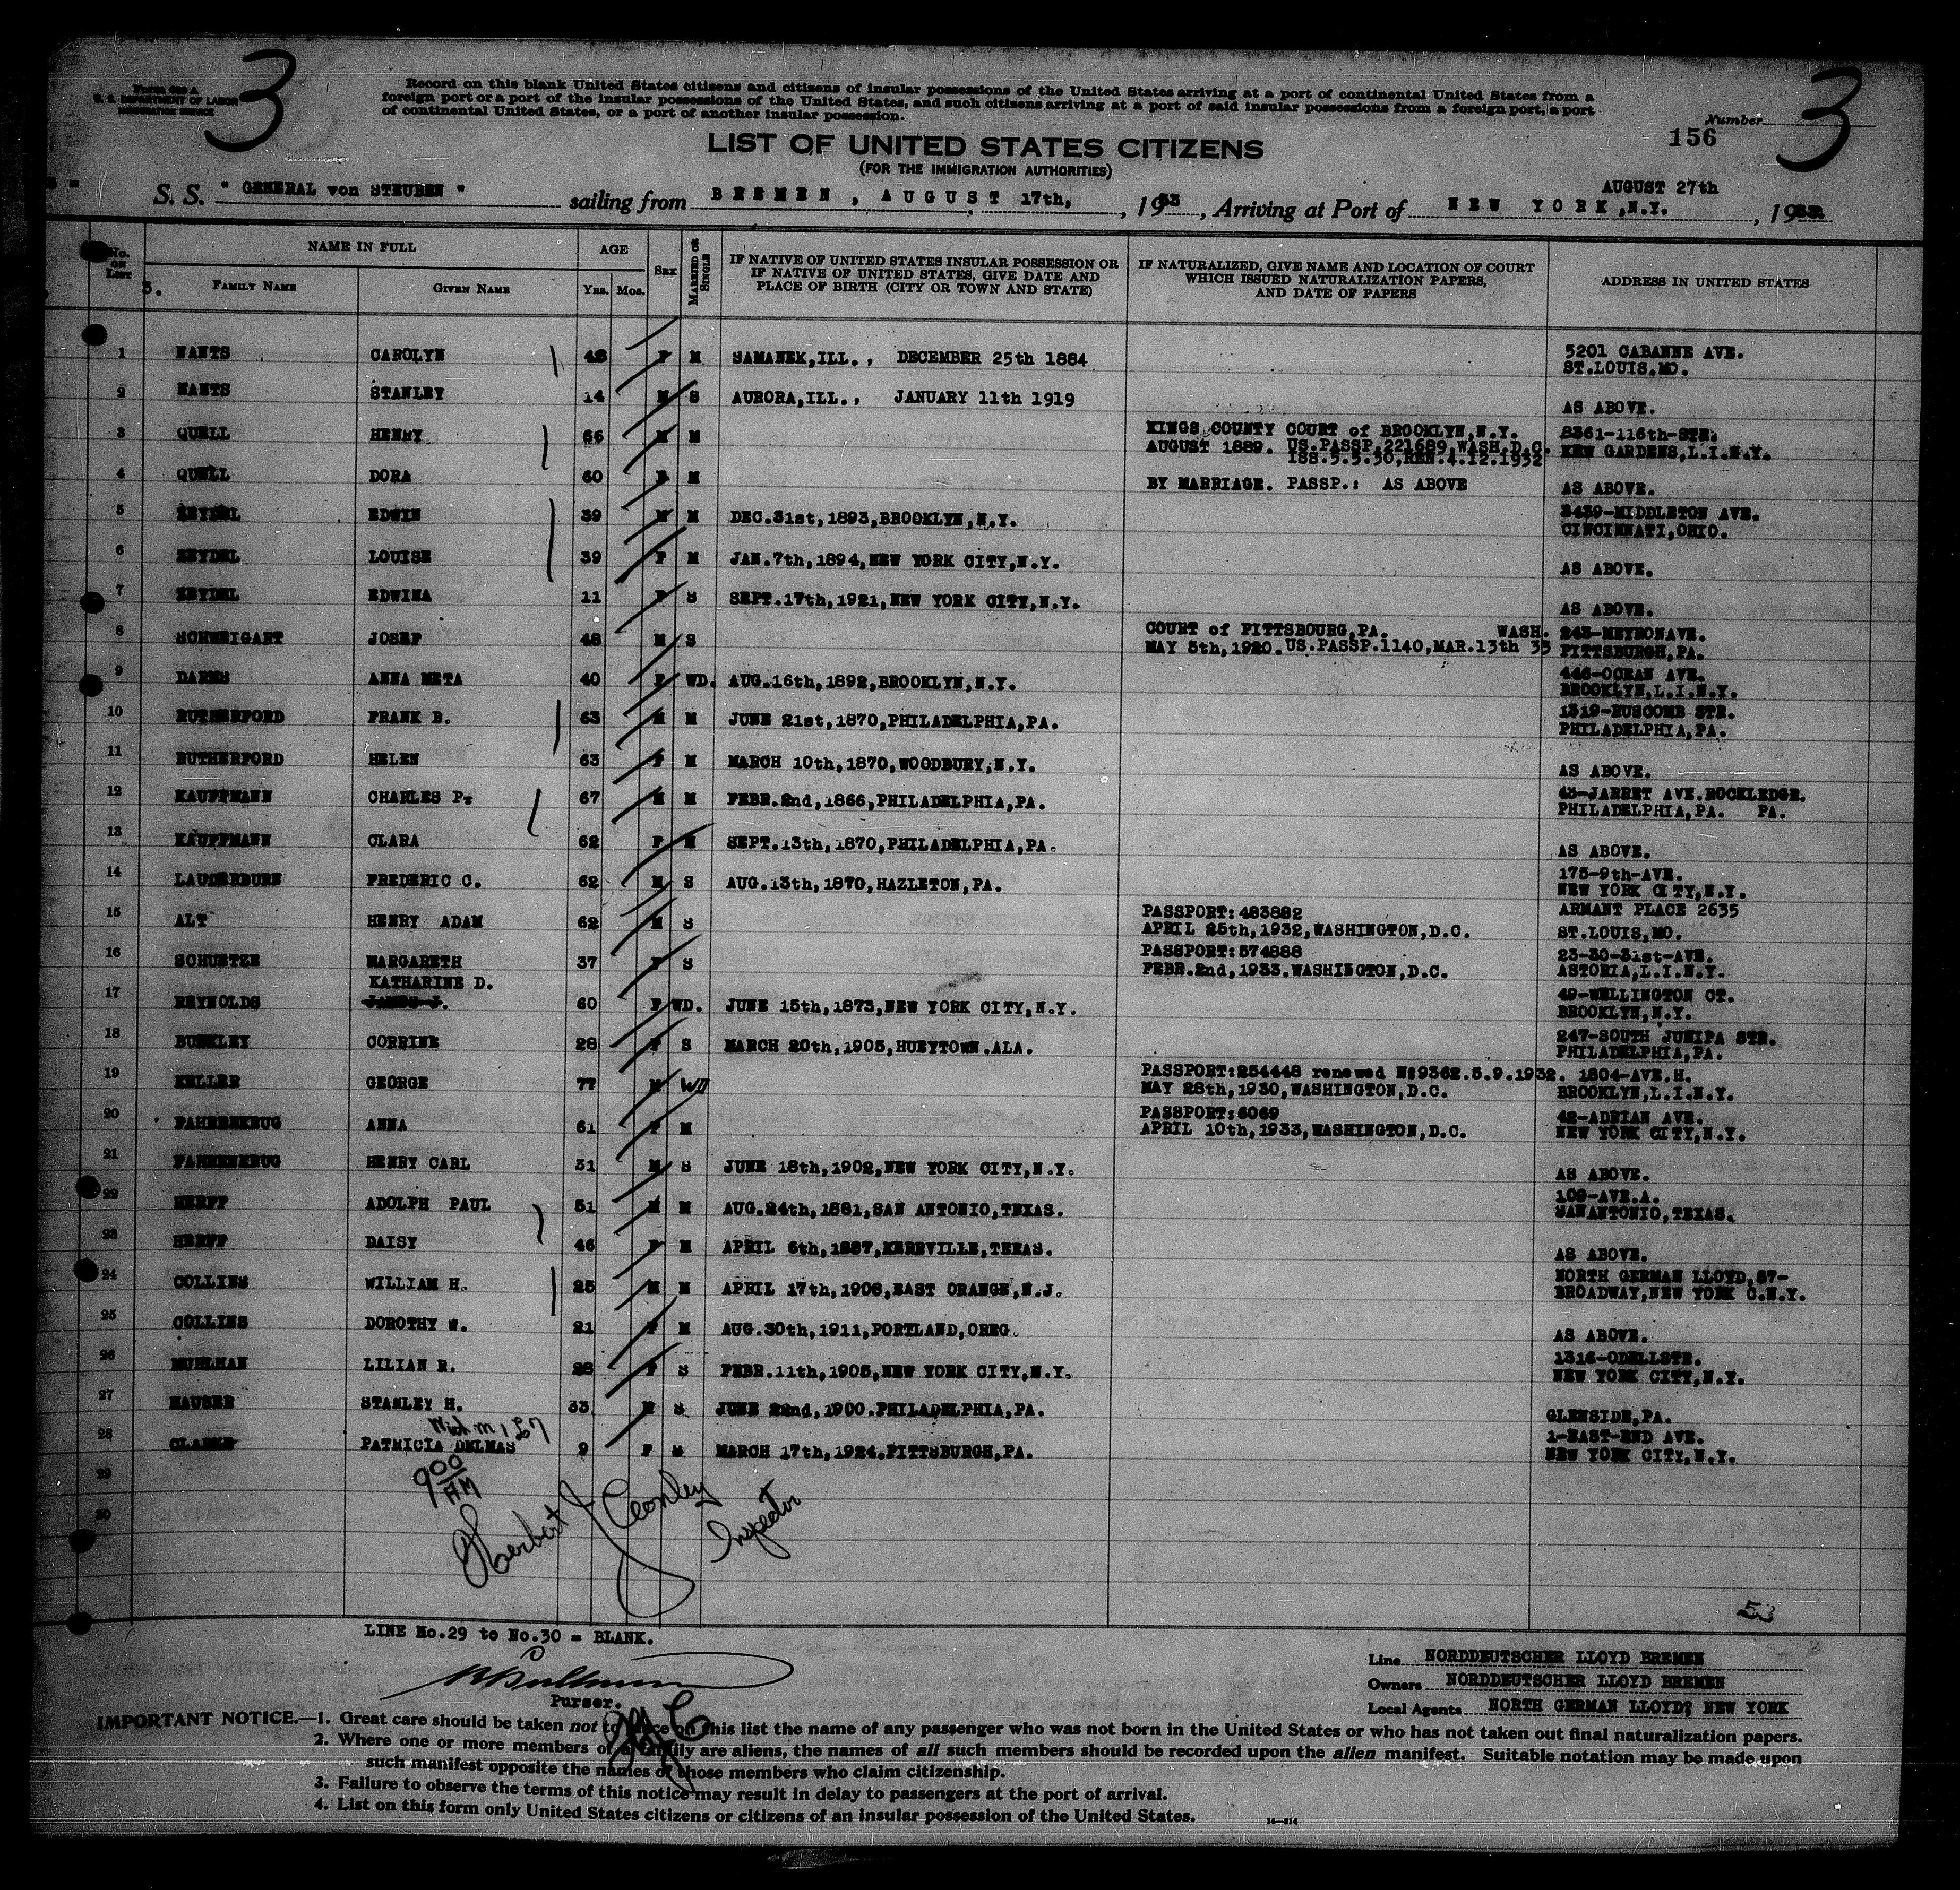 3
3
Form 630 A
U. S. DEPARTMENT OF LABOR
IMMIGRATION SERVICE
Record on this blank United States citizens and citizens of insular possessions of the United States arriving at a port of continental United States from a
foreign port or a port of the insular possessions of the United States, and such citizens arriving at a port of said insular possessions from a foreign port, a port
of continental United States, or a port of another insular possession.
Number
156
LIST OF UNITED STATES CITIZENS
(FOR THE IMMIGRATION AUTHORITIES)
S. S. " GENERAL von STEUBEN " sailing from BREMEN, AUGUST 17th, , 1933, Arriving at Port of NEW YORK,N.Y. AUGUST 27th , 1933
No. on List 3. NAME IN FULL FAMILY NAME GIVEN NAME AGE Yrs. Mos. SEX MARRIED OR SINGLE IF NATIVE OF UNITED STATES INSULAR POSSESSION OR IF NATIVE OF UNITED STATES, GIVE DATE AND PLACE OF BIRTH (CITY OR TOWN AND STATE) IF NATURALIZED, GIVE NAME AND LOCATION OF COURT WHICH ISSUED NATURALIZATION PAPERS, AND DATE OF PAPERS ADDRESS IN UNITED STATES
1 NANTS CAROLYN 48 F M SAMANEK,ILL., DECEMBER 25th 1884 5201 CABANNE AVE. ST.LOUIS,MO.
2 NANTS STANLEY 14 M S AURORA,ILL., JANUARY 11th 1919 AS ABOVE.
3 QUELL HENRY 66 M M KINGS COUNTY COURT of BROOKLYN,N.Y. AUGUST 1889. US.PASSP.221689,WASH.D.C. ISS.5.5.30,REN.4.12.1932 8361-116th-STR. KEW GARDENS,L.I.N.Y.
4 QUELL DORA 60 F M BY MARRIAGE. PASSP.: AS ABOVE AS ABOVE.
5 ZEYDEL EDWIN 39 M M DEC.31st,1893,BROOKLYN,N.Y. 3439-MIDDLETON AVE. CINCINNATI,OHIO.
6 ZEYDEL LOUISE 39 F M JAN.7th,1894,NEW YORK CITY,N.Y. AS ABOVE.
7 ZEYDEL EDWINA 11 F S SEPT.17th,1921,NEW YORK CITY,N.Y. AS ABOVE.
8 SCHWEIGART JOSEF 48 M S COURT of PITTSBOURG,PA. WASH. MAY 5th,1920.US.PASSP.1140,MAR.13th 33 243-MEYRONAVE. PITTSBURGH,PA.
9 DARMS ANNA META 40 F WD. AUG.16th,1892,BROOKLYN,N.Y. 446-OCEAN AVE. BROOKLYN,L.I.N.Y.
10 RUTHERFORD FRANK B. 63 M M JUNE 21st,1870,PHILADELPHIA,PA. 1319-RUSCOMB STR. PHILADELPHIA,PA.
11 RUTHERFORD HELEN 63 F M MARCH 10th,1870,WOODBURY,N.Y. AS ABOVE.
12 KAUFFMANN CHARLES P. 67 M M FEBR.2nd,1866,PHILADELPHIA,PA. 43-JARRET AVE.ROCKLEDGE. PHILADELPHIA,PA. PA.
13 KAUFFMANN CLARA 62 F M SEPT.13th,1870,PHILADELPHIA,PA. AS ABOVE.
14 LAUDERBURN FREDERIC C. 62 M S AUG.13th,1870,HAZLETON,PA. 175-9th-AVE. NEW YORK CITY,N.Y.
15 ALT HENRY ADAM 62 M S PASSPORT:483882 APRIL 25th,1932,WASHINGTON,D.C. ARMANT PLACE 2635 ST.LOUIS,MO.
16 SCHUETZE MARGARETH 37 F S PASSPORT:574888 FEBR.2nd,1933.WASHINGTON,D.C. 23-30-31st-AVE. ASTORIA,L.I.N.Y.
17 REYNOLDS KATHARINE D. JAMES J. 60 F WD. JUNE 15th,1873,NEW YORK CITY,N.Y. 49-WELLINGTON CT. BROOKLYN,N.Y.
18 BURKLEY CORRINE 28 F S MARCH 20th,1905,HUEYTOWN.ALA. 247-SOUTH JUNIPA STR. PHILADELPHIA,PA.
19 KELLER GEORGE 77 M WD PASSPORT:254448 renewed No9362.5.9.1932. MAY 28th,1930,WASHINGTON,D.C. 1804-AVE.H. BROOKLYN,L.I.N.Y.
20 FAHRENKRUG ANNA 61 F M PASSPORT:6069 APRIL 10th,1933,WASHINGTON,D.C. 42-ADRIAN AVE. NEW YORK CITY,N.Y.
21 FAHRENKRUG HENRY CARL 31 M S JUNE 18th,1902,NEW YORK CITY,N.Y. AS ABOVE.
22 HERFF ADOLPH PAUL 51 M M AUG.24th,1881,SAN ANTONIO,TEXAS. 109-AVE.A. SANANTONIO,TEXAS.
23 HERFF DAISY 46 F M APRIL 6th,1887,KERRVILLE,TEXAS. AS ABOVE.
24 COLLINS WILLIAM H. 25 M M APRIL 17th,1908,EAST ORANGE,N.J. NORTH GERMAN LLOYD,57- BROADWAY,NEW YORK C.N.Y.
25 COLLINS DOROTHY W. 21 F M AUG.30th,1911,PORTLAND,OREG. AS ABOVE.
26 MUHLHAN LILIAN R. 28 F S FEBR.11th,1905,NEW YORK CITY,N.Y. 1316-ODELLSTR. NEW YORK CITY,N.Y.
27 HAUSER STANLEY H. 33 M S JUNE 22nd,1900.PHILADELPHIA,PA. GLENSIDE,PA.
28 CLARKE PATRICIA DELMAS 9 F S MARCH 17th,1924.PITTSBURGH,PA. 1-EAST-END AVE. NEW YORK CITY,N.Y.
29
30
900 AM
Herbert J Conley
Inspector
53
LINE No.29 to No.30 = BLANK.
Purser.
Line NORDDEUTSCHER LLOYD BREMEN
Owners NORDDEUTSCHER LLOYD BREMEN
Local Agents NORTH GERMAN LLOYD, NEW YORK
IMPORTANT NOTICE.—1. Great care should be taken not to place on this list the name of any passenger who was not born in the United States or who has not taken out final naturalization papers.
2. Where one or more members of a family are aliens, the names of all such members should be recorded upon the alien manifest. Suitable notation may be made upon
such manifest opposite the names of those members who claim citizenship.
3. Failure to observe the terms of this notice may result in delay to passengers at the port of arrival.
4. List on this form only United States citizens or citizens of an insular possession of the United States.
14—814